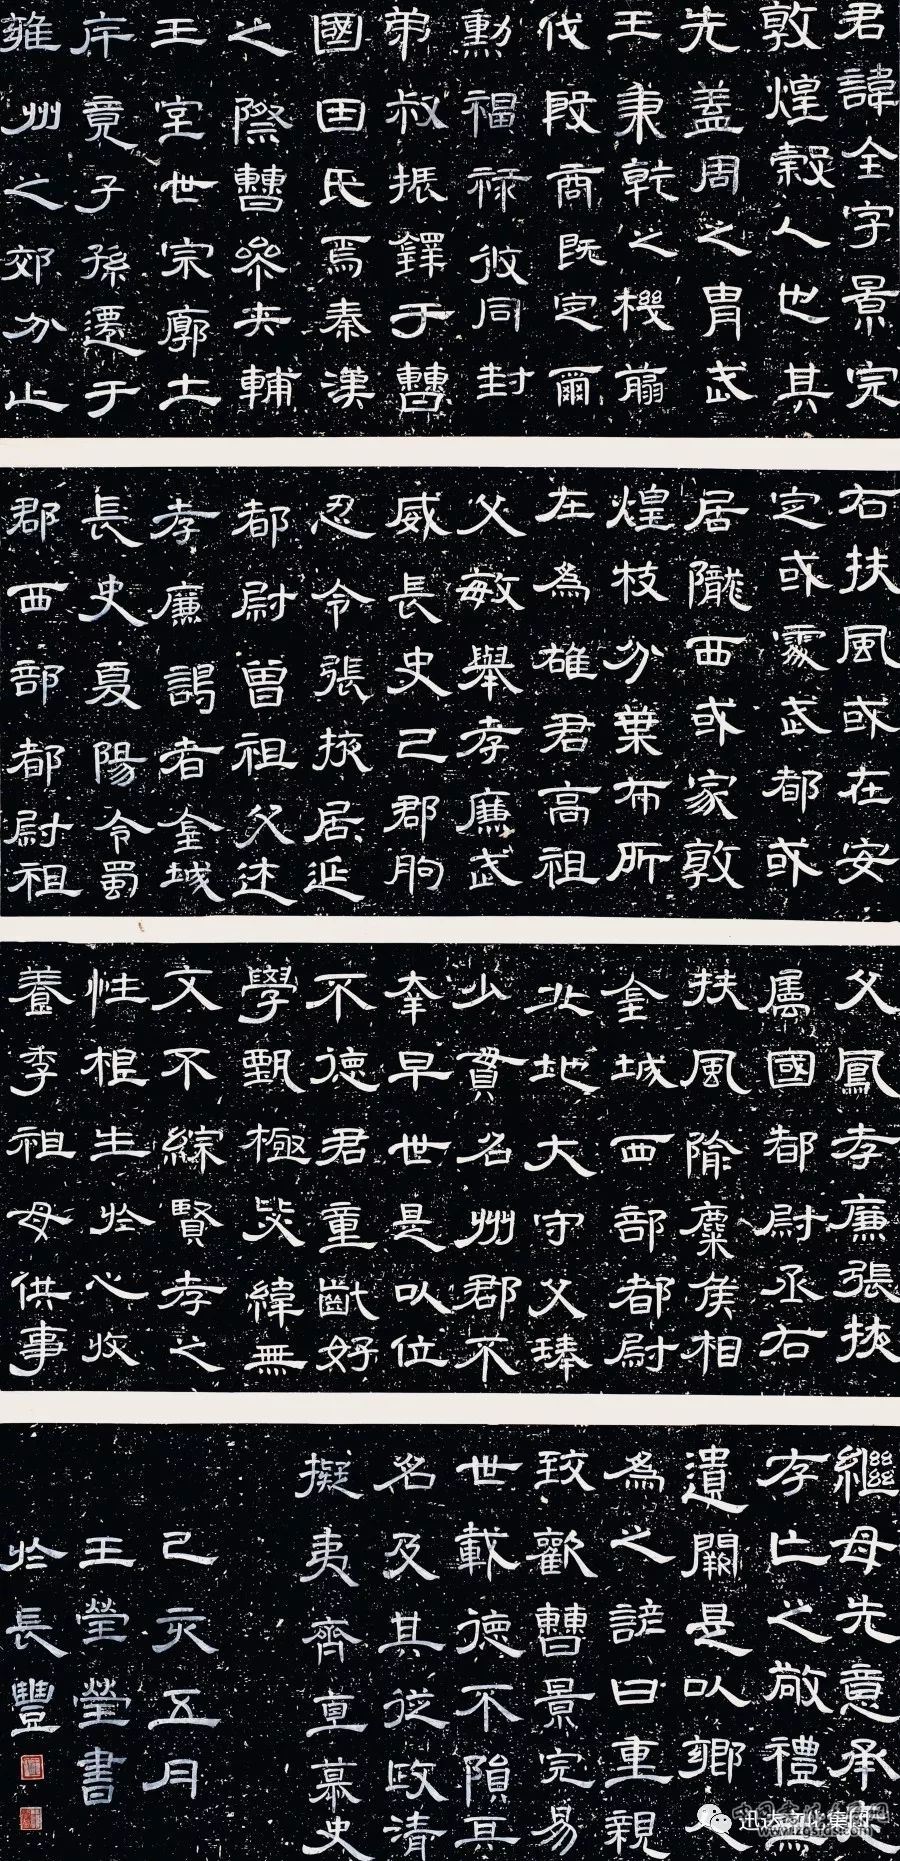 君諱全字景完
敦煌穀人也其
先蓋周之胄武
王秉乾之機翦
伐殷商既定爾
勳福祿攸同封
弟叔振鐸于曹
國田氏焉秦漢
之際曹參夾輔
王室世宗廓土
斥竟子孫遷于
雍州之郊分止
右扶風或在安
定或處武都或
居隴西或家敦
煌枝分葉布所
在為雄君高祖
父敏舉孝廉武
威長史巴郡朐
忍令張掖居延
都尉曾祖父述
孝廉謁者金城
長史夏陽令蜀
郡西部都尉祖
父鳳孝廉張掖
屬國都尉丞右
扶風隃麋侯相
金城西部都尉
北地大守父琫
少貫名州郡不
幸早世是以位
不德君童齔好
學甄極毖緯無
文不綜賢孝之
性根生於心收
養季祖母供事
繼母先意承
存亡之敬禮無
遺闕是以鄉人
為之諺曰重親
致歡曹景完易
世載德不隕其
名及其從政清
擬夷齊直慕史
己亥五月
王瑩瑩書
於長豐
迅达文化集团